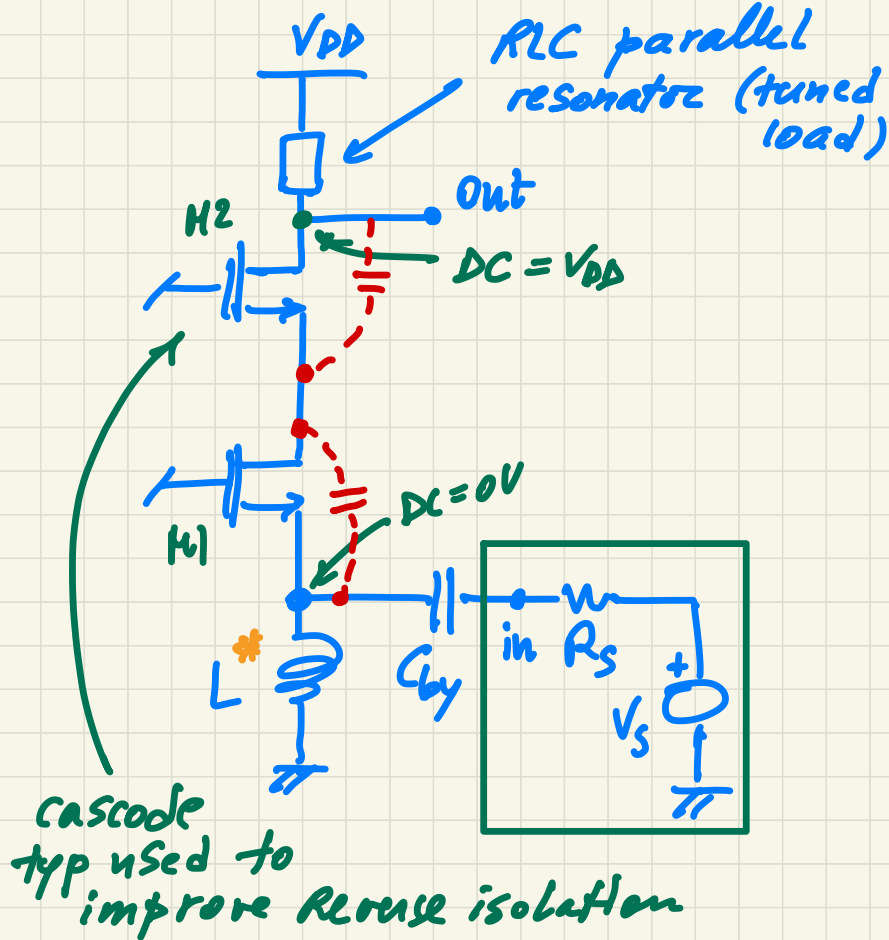 VDD
RLC parallel
resonator (tuned
load)
Out
M2
DC = VDD
DC = 0V
M1
*
L
Cby
in
Rs
+
Vs
cascode
typ used to
improve Reverse isolation